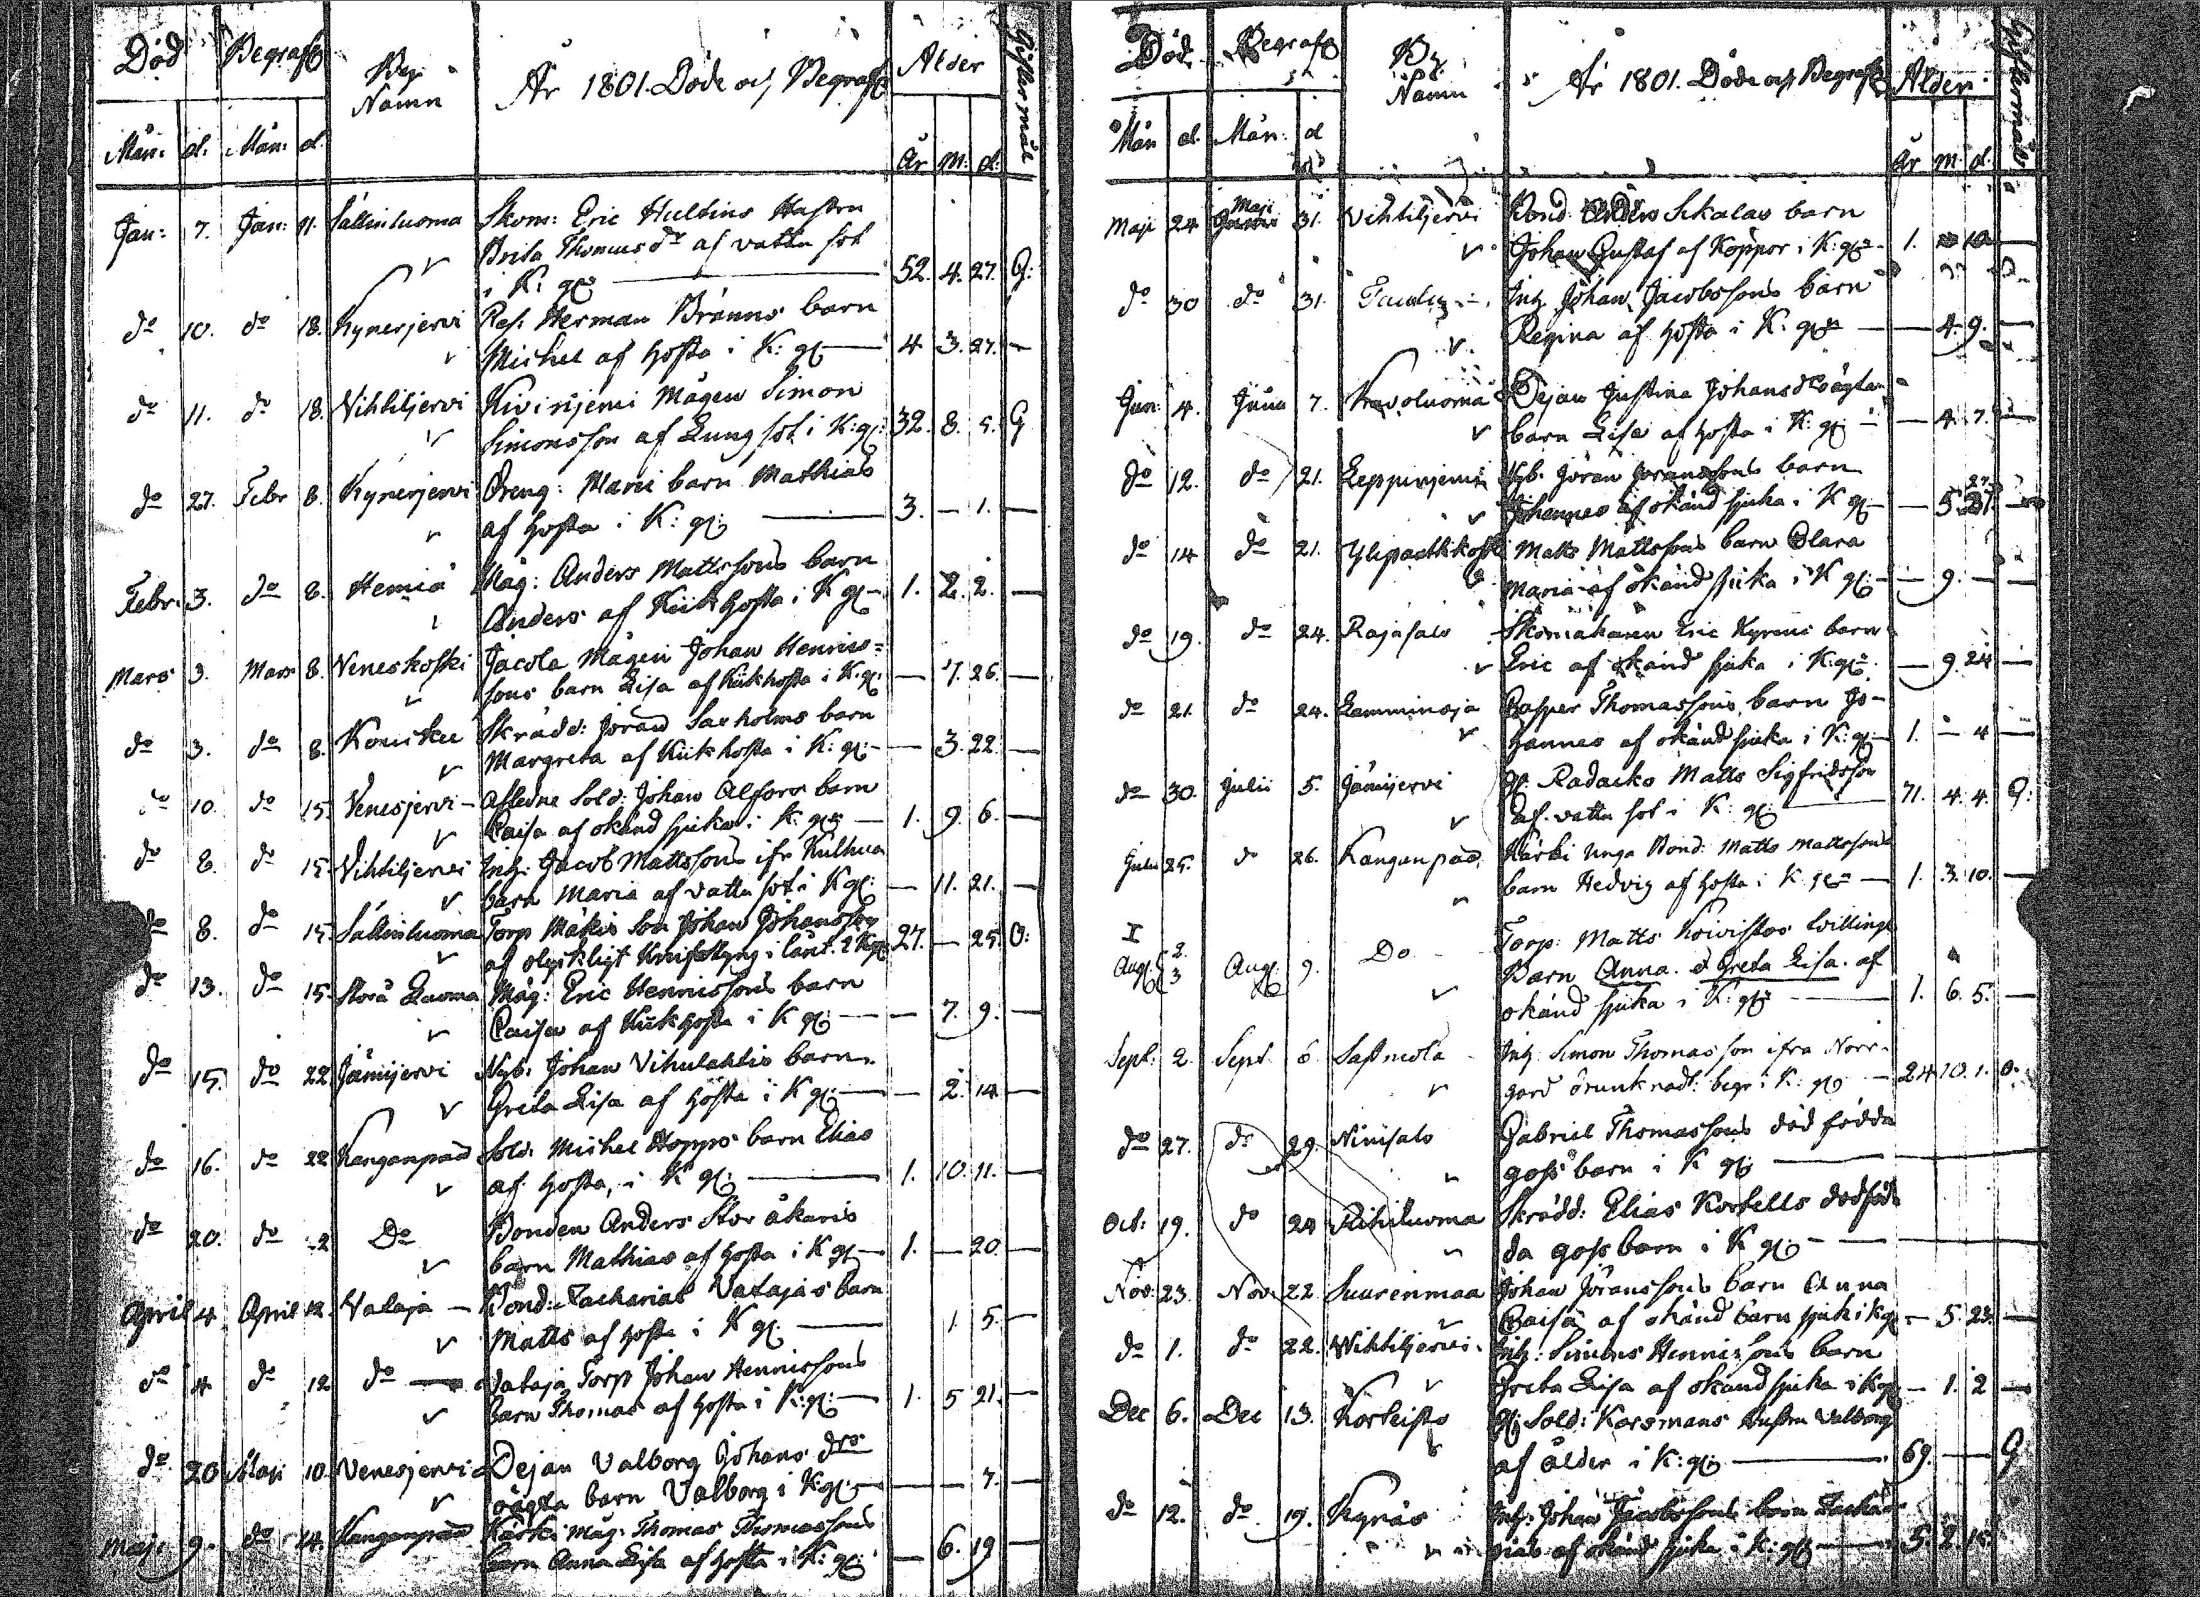 Död Begrafs By. Namn År 1801. Döde och Begrafs Ålder Giftermål
Mån: d. Mån: d. År M: d:
Jan: 7. Jan: 11. Sällinluoma Skom: Eric Hultins Hustru
Brita Thomasdr af vattu sot
i K: gl: 52. 4. 27. G:
do 10. do 18. Kynerjervi Res. Herman Bränns barn
Michel af hosta i K: gl: 4 3. 27. —
do 11. do 18. Vihtiljervi Kivinjemi Mågen Simon
Simonsson af Lungsot i K: gl: 32. 8. 5. G
do 27. Febr 8. Kynerjervi Dreng: Marci barn Mathias
af hosta i K: gl: 3. — 1. —
Febr. 3. do 8. Hemiä Måg: Anders Mattssons barn
Anders af Kiikhosta i K gl: 1. 2. 2. —
Mars 3. Mars 8. Neneskoski Jacola Mågen Johan Henrics=
sons barn Lisa af Kiikhosta i K. gl: — 7. 26. —
do 3. do 8. Kouisku Skrädd: Jöran Saxholms barn
Margreta af Kiikhosta i K: gl: — 3. 22. —
do 10. do 15 Venesjervi Afledne Sold: Johan Alfors barn
Caisa af okänd sjuka i K: gl: 1. 9. 6. —
do 8. do 15. Vihtiljervi Inh: Jacob Mattssons ifr Kulhua
barn Maria af vattu sot i K gl: — 11. 21. —
do 8. do 15. Sällinluoma Torp Mäkis Son Johan Johansson
af olyckligt Knifstyng i länt. 2 K gl: 27. — 25. O:
do 13. do 15. Storå Luoma Måg: Eric Hennissons barn
Caisa af Kiikhosta i K gl: — 7. 9. —
do 15. do 22 Jämijervi Nyb: Johan Vihulahtis barn
Greta Lisa af hosta i K gl: — 2. 14 —
do 16. do 22 Kanganpää Sold: Michel Hopps barn Elias
af hosta, i K gl: 1. 10. 11. —
do 20. do 22 Do Bonden Anders Stor åkaris
barn Mathias af hosta i K gl: 1. — 20. —
April 4. April 12. Vataja Bond: Zacharias Vatajas barn
Matts af hosta i K gl: 1. 5. —
do 4 do 12 do Vataja Torp Johan Hennissons
barn Thomas af hosta i K: gl: 1. 5 21. —
do 20 Maji 10. Venesjervi Dejan Valborg Johans drs
oägta barn Valborg i K gl: — — 7. —
Maji 9. do 14. Kanganpää Käski måg: Thomas Thomassons
barn Anna Lisa af hosta i K: gl: — 6. 19 —
Död. Begrafs By. Namn År 1801. Döde och Begrafs Ålder Giftermål
Mån d. Mån: d År M. d.
Maji 24 Maji 31. Vihtiljervi Bond: Anders Sikalas barn
Johan Gustaf af Koppor i K: gl: 1. 10 —
do 30 do 31. Inh: Johan Jacobssons barn
Regina af hosta i K. gl: — 4. 9. —
Jun: 4. Juna 7. Dejan Justina Johansdrs oägta
barn Lisa af hosta i K: gl: — 4. 7. —
do 12. do 21. Leppinjemi Nyb: Jöran Joranssons barn
Johannes af okänd sjuka i K gl: — 5. 27. —
do 14 do 21. Matts Mattssons barn Clara
Maria af okänd sjuka i K gl: — 9. — —
do 19. do 24. Rajasalo Skomakaren Eric Kyrenii barn
Eric af okänd sjuka i K: gl: — 9. 24 —
do 21. do 24. Lamminoja Casper Thomassons barn Jo-
hannes af okänd sjuka i K: gl: 1. — 4 —
do 30. Julii 5. Jämijervi gl: Radacko Matts Sigfridsson
af vattu sot i K: gl: 71. 4. 4. G:
Julii 25. do 26. Kanganpää Käski unga Bond: Matts Mattssons
barn Hedvig af hosta i K gl: 1. 3. 10. —
Aug: 2. 3 Aug: 9. Do Torp: Matts Koivistos tvillinge
Barn Anna. & Greta Lisa. af
okänd sjuka i K: gl: 1. 6. 5. —
Sept: 2. Sept. 6. Sastmola Inh: Simon Thomasson ifrå Norr-
gård drunknadt: begr: i K: gl: 24 10. 1. O.
do 27. do 29. Niinisalo Gabriel Thomassons död födda
goss barn i K gl:
Oct: 19. do 24 Skrädd: Elias Kortells dödföd
da goss barn i K gl:
Nov: 23. Nov: 22 Suurenmaa Johan Jöranssons barn Anna
Caisa af okänd barn sjuk i K gl: — 5. 23. —
do 1. do 22. Vihtiljervi Inh: Simons Hennissons barn
Greta Lisa af okänd sjuka i K gl: — 1. 2 —
Dec 6. Dec 13. Korteisto gl: Sold: Korsmans Hustru Valborg
af ålder i K: gl: 69. — G
do 12. do 19. Kyräs Inh: Johan Jacobssons barn Zacha
rias af okänd sjuka i K: gl: 5. 2. 15.